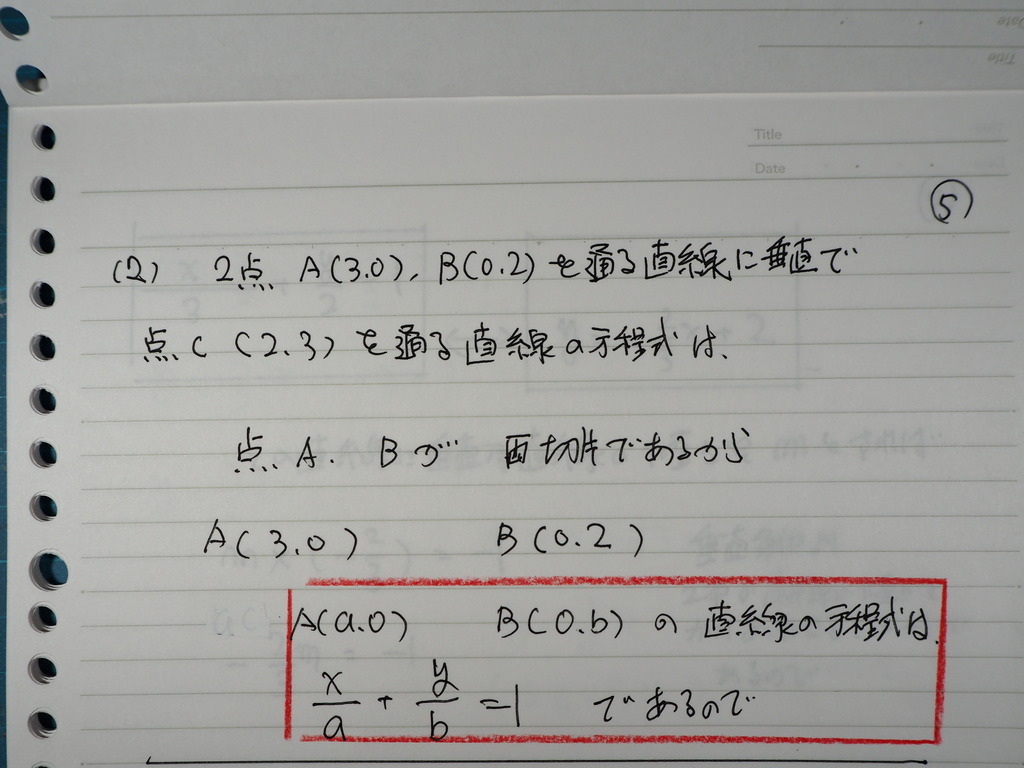 Date
Title
Title
Date
⑤
(2) 2点 A(3.0), B(0.2)を通る直線に垂直で
点C (2.3)を通る直線の方程式は、
点A. Bが 両切片であるから
A(3.0) B(0.2)
A(a.0) B(0.b)の 直線の方程式は、
x/a + y/b = 1 であるので